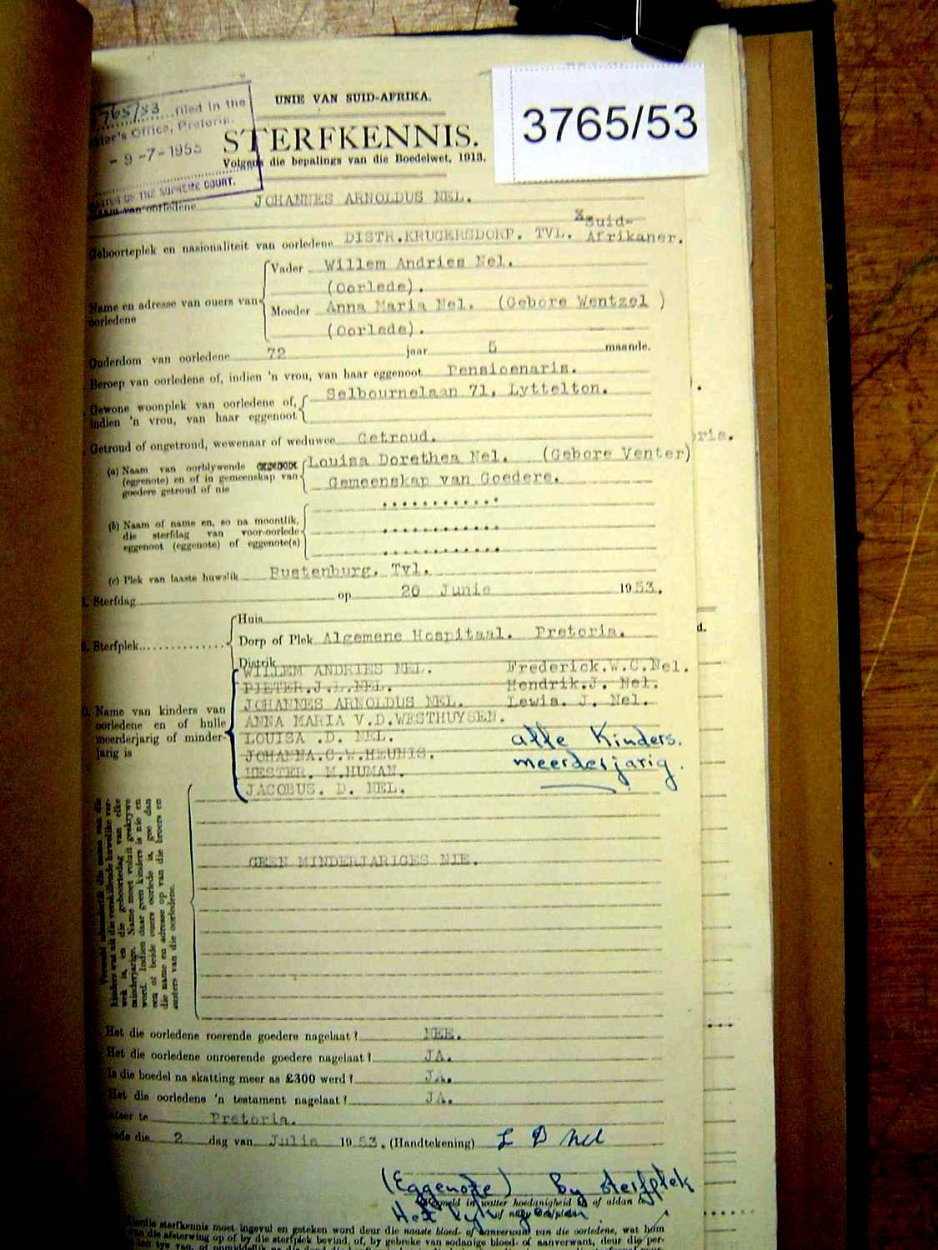 3765/53
3765/53 filed in the
Master's Office, Pretoria.
- 9 -7-1953
MASTER OF THE SUPREME COURT.
UNIE VAN SUID-AFRIKA.
STERFKENNIS.
Volgens die bepalings van die Boedelwet, 1913.
Naam van oorledene JOHANNES ARNOLDUS NEL.
Geboorteplek en nasionaliteit van oorledene DISTR.KRUGERSDORP. TVL. Suid-Afrikaner.
Name en adresse van ouers van oorledene
Vader Willem Andries Nel.
(Oorlede).
Moeder Anna Maria Nel. (Gebore Wentzel )
(Oorlede).
Ouderdom van oorledene 72 jaar 5 maande.
Beroep van oorledene of, indien 'n vrou, van haar eggenoot Pensioenaris.
Gewone woonplek van oorledene of, indien 'n vrou, van haar eggenoot Selbournelaan 71, Lyttelton.
Getroud of ongetroud, wewenaar of weduwee Getroud.
(a) Naam van oorblywende (eggenote) en of in gemeenskap van goedere getroud of nie
Louisa Dorethea Nel. (Gebore Venter)
Gemeenskap van Goedere.
(b) Naam of name en, so na moontlik, die sterfdag van voor-oorlede eggenoot (eggenote) of eggenote(s)
(c) Plek van laaste huwelik Rustenburg. Tvl.
Sterfdag op 20 Junie 1953.
9. Sterfplek
Huis
Dorp of Plek Algemene Hospitaal. Pretoria.
Distrik
Name van kinders van oorledene en of hulle meerderjarig of minderjarig is
WILLEM ANDRIES NEL. Frederick.W.C.Nel.
PIETER.J.L.NEL. Hendrik.J. Nel.
JOHANNES ARNOLDUS NEL. Lewis. J. Nel.
ANNA MARIA V.D.WESTHUYSEN.
LOUISA .D. NEL.
JOHANNA.C.W.HEUNIS.
HESTER. M.HUMAN.
JACOBUS. D. NEL.
alle Kinders.
meerderjarig.
GEEN MINDERJARIGES NIE.
Het die oorledene roerende goedere nagelaat? NEE.
Het die oorledene onroerende goedere nagelaat? JA.
Is die boedel na skatting meer as £300 werd? JA.
Het die oorledene 'n testament nagelaat? JA.
Pretoria.
die 2 dag van Julie 1953. (Handtekening) L D Nel
(Eggenote) By sterfplek
sterfkennis moet ingevul en geteken word deur die naaste bloed- of aanverwant van die oorledene, wat hom